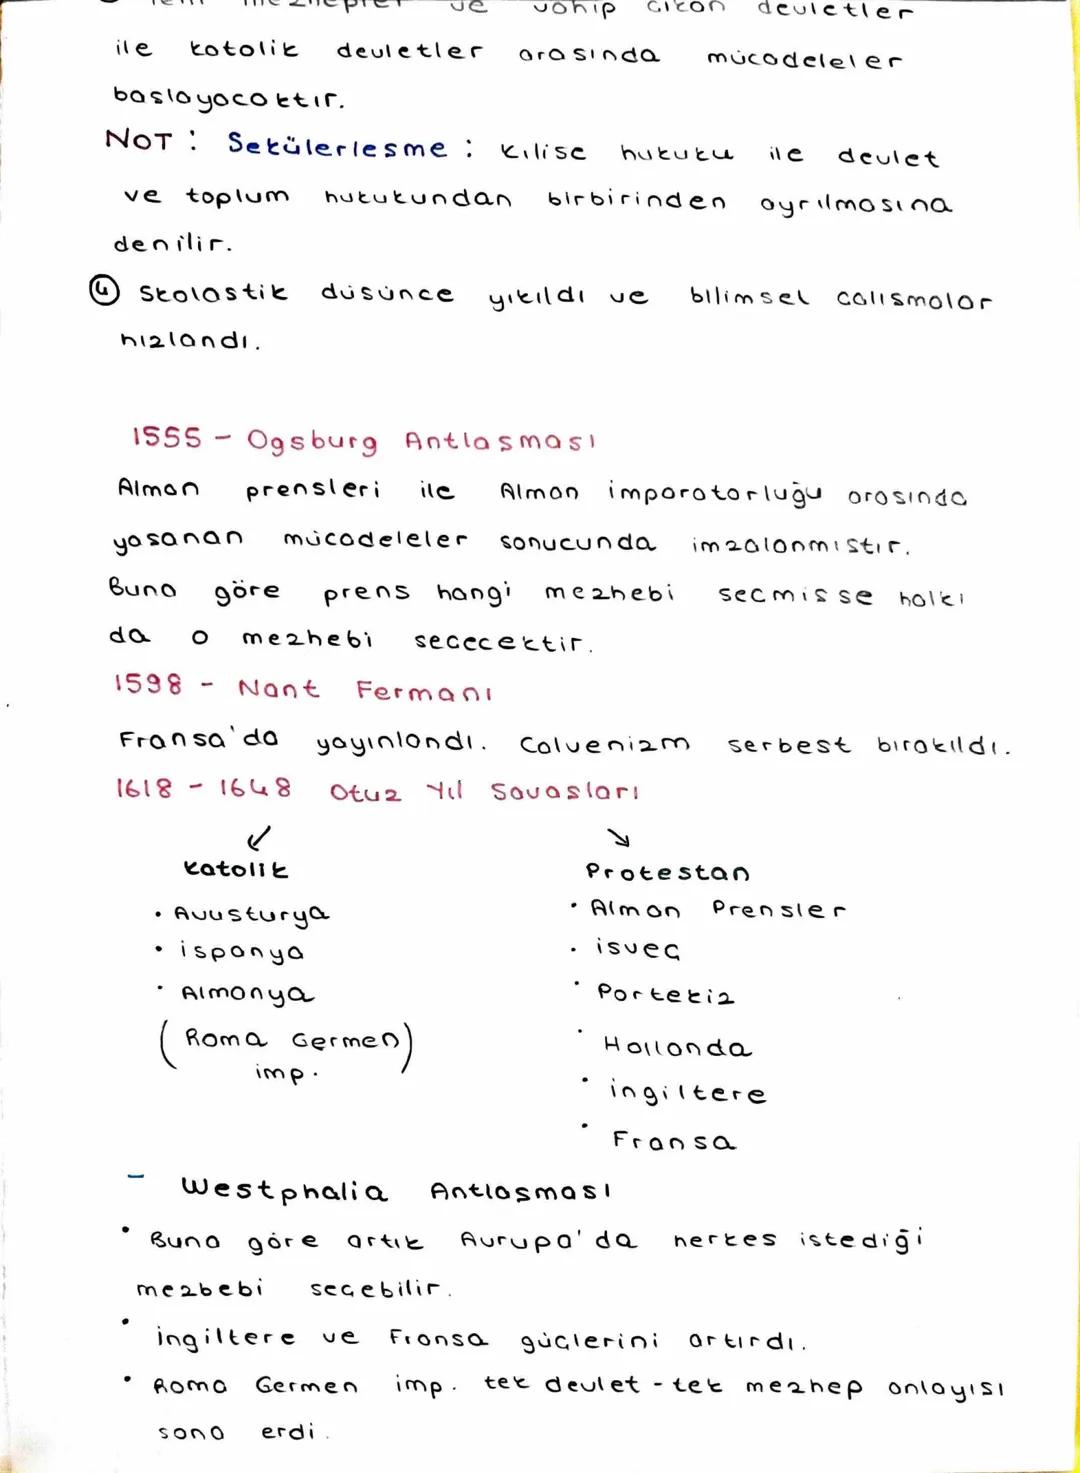 ve sahip çıkan devletler
ile katolik devletler arasında mücadeleler
baslayacaktır.
NOT : Sekülerlesme : Kilise hukuku ile devlet
ve toplum hukukundan birbirinden ayrılmasına
denilir.
④ Skolastik düsünce yıkıldı ve bilimsel calısmalar
hızlandı.
1555 - Ogsburg Antlasması
Alman prensleri ile Alman imparatorluğu arasında
yasanan mücadeleler sonucunda imzalanmıstır.
Buna göre prens hangi mezhebi secmisse halkı
da o mezhebi sececektir.
1598 - Nant Fermanı
Fransa'da yayınlandı. Calvenizm serbest bırakıldı.
1618 - 1648 Otuz Yıl Savasları
↙ ↘
Katolik Protestan
• Avusturya • Alman Prensler
• ispanya • isveç
• Almanya • Portekiz
(Roma Germen) • Hollanda
imp. • ingiltere
• Fransa
- Westphalia Antlasması
• Buna göre artık Avrupa'da herkes istediği
mezbebi seçebilir.
• ingiltere ve Fransa güçlerini artırdı.
• Roma Germen imp. tek devlet - tek mezhep anlayısı
sona erdi.